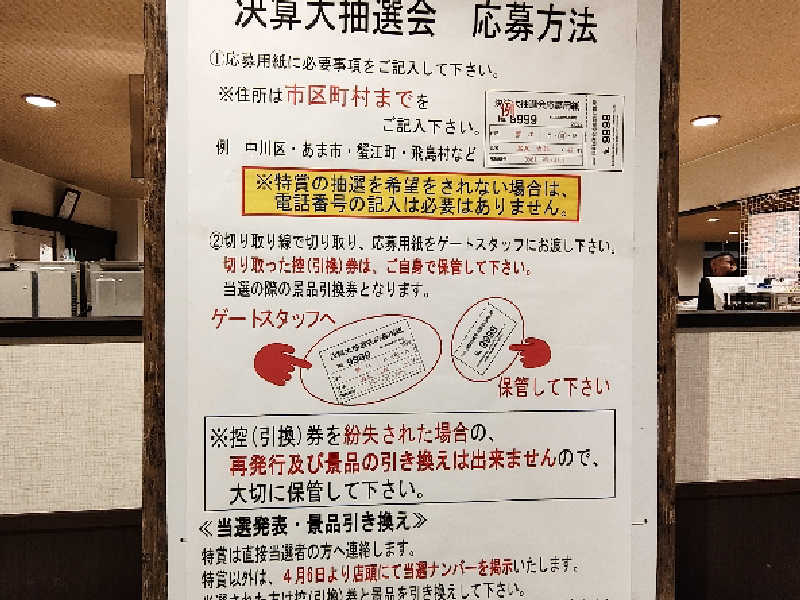 決算大抽選会 応募方法
①応募用紙に必要事項をご記入して下さい。
※住所は市区町村までを
ご記入下さい。
例 中川区・あま市・蟹江町・飛島村など
例
№ 9999
№ 9999
※特賞の抽選を希望をされない場合は、
電話番号の記入は必要はありません。
②切り取り線で切り取り、応募用紙をゲートスタッフにお渡し下さい。
切り取った控(引換)券は、ご自身で保管して下さい。
当選の際の景品引換券となります。
ゲートスタッフへ
№ 9999
№ 9999
保管して下さい
※控(引換)券を紛失された場合の、
再発行及び景品の引き換えは出来ませんので、
大切に保管して下さい。
≪当選発表・景品引き換え≫
特賞は直接当選者の方へ連絡します。
特賞以外は、4月6日より店頭にて当選ナンバーを掲示いたします。
当選された方は控(引換)券と景品を引き換えして下さい。